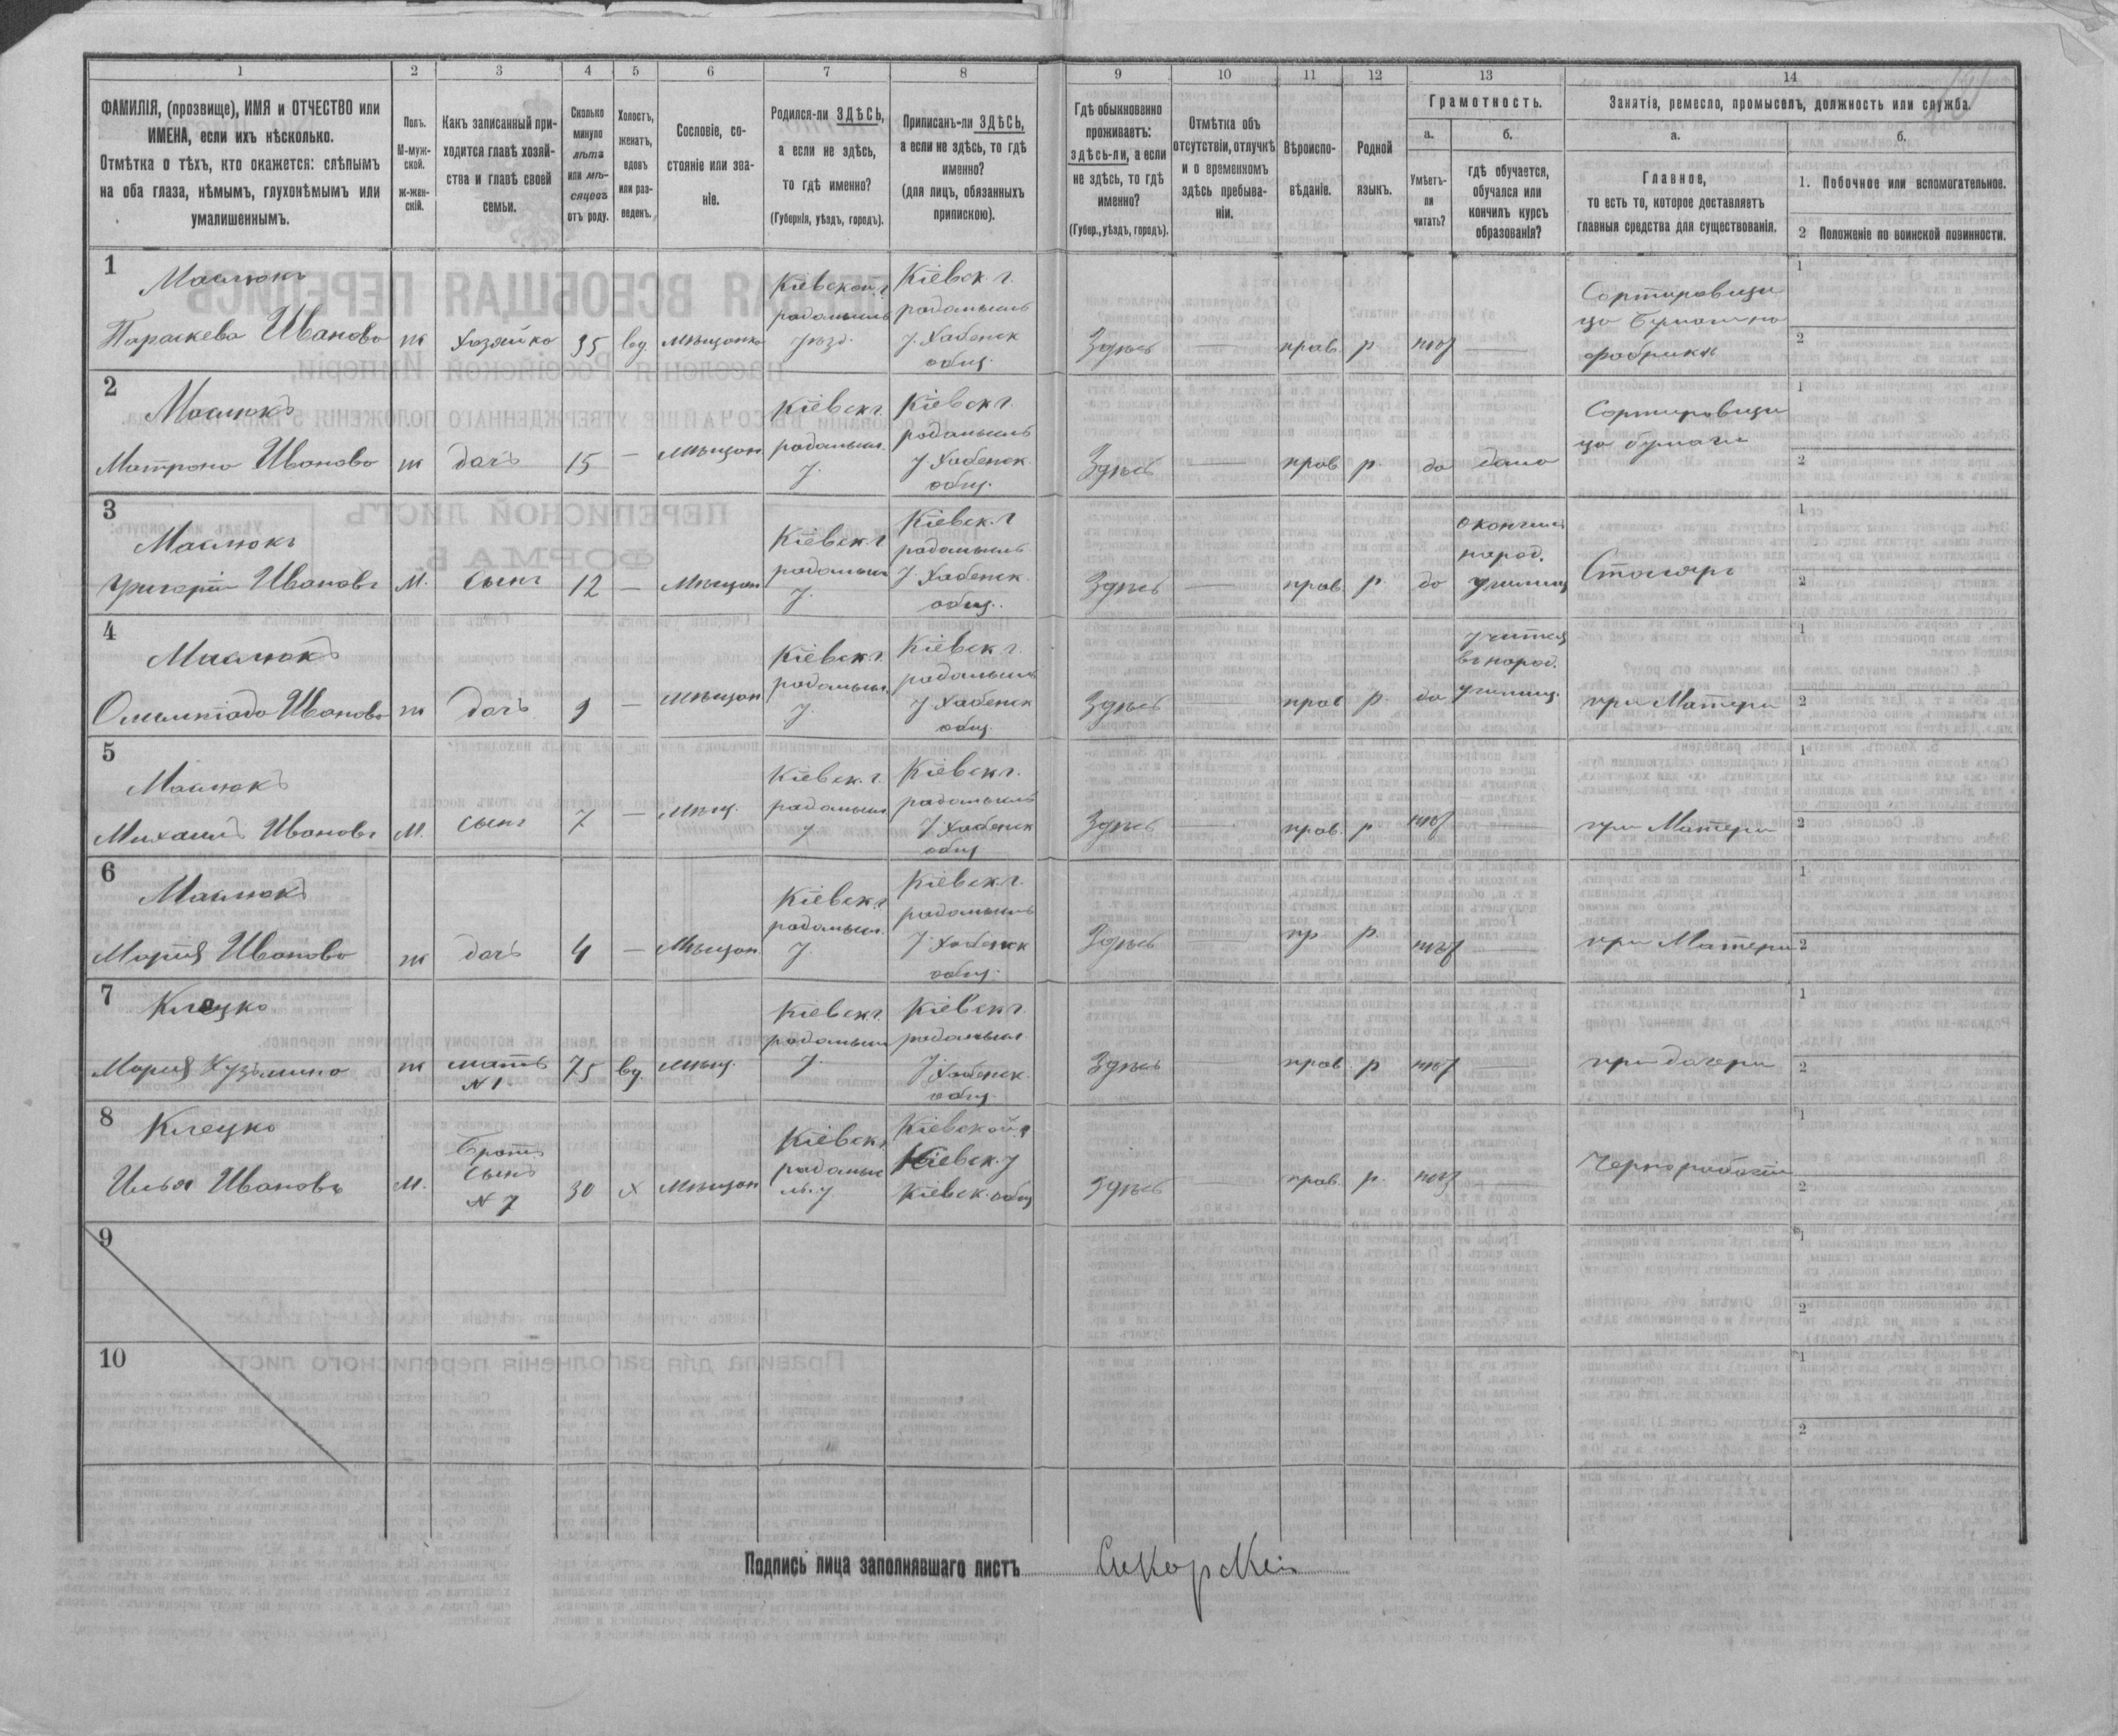 1 2 3 4 5 6 7 8 9 10 11 12 13 14
ФАМИЛІЯ, (прозвище), ИМЯ и ОТЧЕСТВО или
ИМЕНА, если ихъ нѣсколько.
Отмѣтка о тѣхъ, кто окажется: слѣпымъ
на оба глаза, нѣмымъ, глухонѣмымъ или
умалишеннымъ.
Полъ.
М-муж-
ской.
ж-жен-
скій.
Какъ записанный при-
ходится главѣ хозяй-
ства и главѣ своей
семьи.
Сколько
минуло
лѣтъ
или мѣ-
сяцевъ
отъ роду.
Холостъ,
женатъ,
вдовъ
или раз-
веденъ.
Сословіе, со-
стояніе или зва-
ніе.
Родился-ли ЗДѢСЬ,
а если не здѣсь,
то гдѣ именно?
(Губернія, уѣздъ, городъ).
Приписанъ-ли ЗДѢСЬ,
а если не здѣсь, то гдѣ
именно?
(для лицъ, обязанныхъ
припискою).
Гдѣ обыкновенно
проживаетъ:
здѣсь-ли, а если
не здѣсь, то гдѣ
именно?
(Губер., уѣздъ, городъ).
Отмѣтка объ
отсутствіи, отлучкѣ
и о временномъ
здѣсь пребыва-
ніи.
Вѣроиспо-
вѣданіе.
Родной
языкъ.
Грамотность.
а.
Умѣетъ-
ли
читать?
б.
гдѣ обучается,
обучался или
кончилъ курсъ
образованія?
Занятія, ремесло, промыселъ, должность или служба.
а.
Главное,
то есть то, которое доставляетъ
главныя средства для существованія.
б.
1. Побочное или вспомогательное.
2 Положеніе по воинской повинности.
1
Маслюкъ
Параскева Иванова ж Хозяйка 35 вд. мѣщанка
Кіевской г.
радомысль
уѣзд.
Кіевск. г.
радомысль
у. Хабенск
общ.
Здѣсь — прав. р нѣт —
Сортировщи
ца бумаги на
фабрикѣ
1
2
2
Маслюкъ
Матрона Иванова ж дочь 15 — мѣщан
Кіевск г.
радомысл.
у.
Кіевск г.
радомысль
у. Хабенск.
общ.
Здѣсь — прав р. да дома
Сортировщи
ца бумаги
1
2
3
Маслюкъ
Григорій Ивановъ М. сынъ 12 — Мѣщан
Кіевск г
радомысл
у.
Кіевск. г
радомысль
у. Хабенск.
общ.
Здѣсь — прав. р. да
окончил
народ.
училищ
Столяръ
1
2
4
Маслюкъ
Олимпіада Иванова ж дочь 9 — мѣщан
Кіевск. г.
радомысл.
у.
Кіевск г.
радомысль
у Хабенск
общ.
Здѣсь — прав р. да
учится
въ народ.
училищ.
при Матери
1
2
5
Маслюкъ
Михаилъ Ивановъ М. сынъ 7 — Мѣщ.
Кіевск. г.
радомысл
у
Кіевск г.
радомысль
у Хабенск
общ
Здѣсь — прав. р нѣт —
при Матери
1
2
6
Маслюкъ
Марія Иванова ж дочь 4 — Мѣщан
Кіевск. г
радомысл.
у.
Кіевск. г.
радомысль
у. Хабенск
общ.
Здѣсь — пр р. нѣт —
при Матери
1
2
7
Клецко
Марія Кузьмина ж мать
№ 1.
75 вд. мѣщ.
Кіевск г.
радомысл
у.
Кіевск г.
радомысл
у. Хабенск.
общ.
Здѣсь прав. р нѣт —
при дочери
1
2
8
Клецко
Илья Ивановъ М.
Братъ
Сынъ
№ 7
30 х Мѣщан
Кіевск г
радомыс
ль. у
Кіевской г
Кіевск. у
Кіевск. общ
Здѣсь прав. р. нѣт —
Чернорабочій
1
2
9
1
2
10
1
2
Подпись лица заполнявшаго листъ Сикорскій